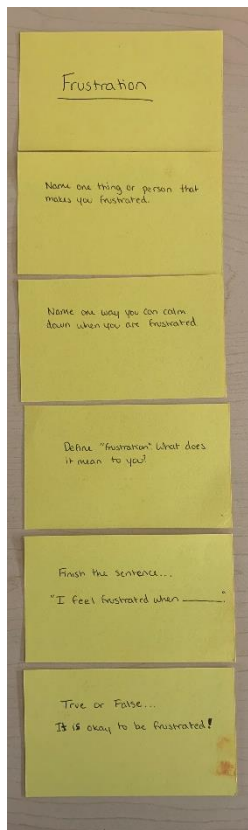 Frustration
Name one thing or person that
makes you frustrated.
Name one way you can calm
down when you are frustrated
Define "frustration" What does
it mean to you?
Finish the sentence...
"I feel frustrated when ______."
True or False...
It is okay to be frustrated!